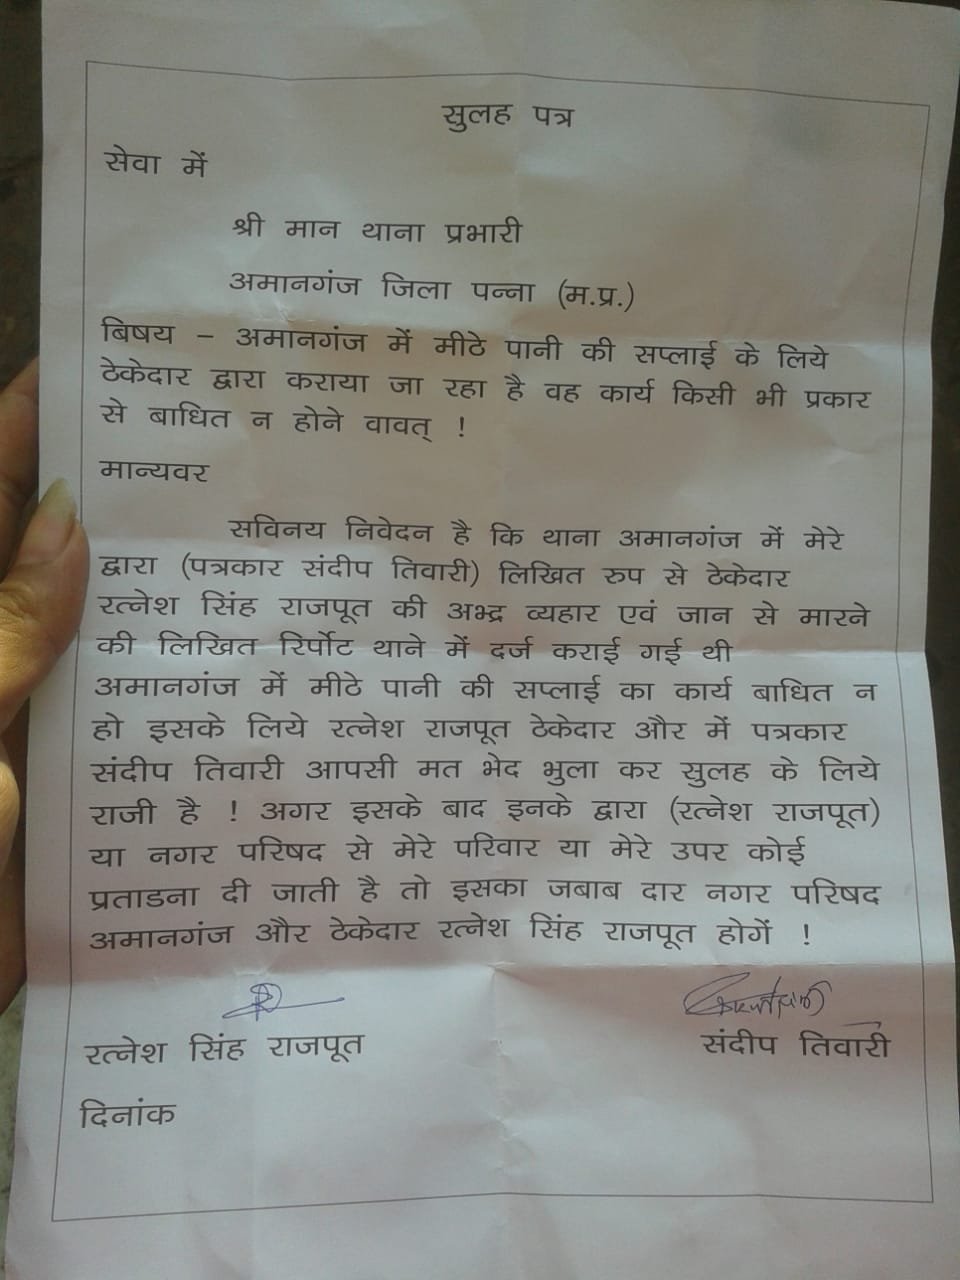 सुलह पत्र
सेवा में
श्री मान थाना प्रभारी
अमानगंज जिला पन्ना (म.प्र.)
बिषय – अमानगंज में मीठे पानी की सप्लाई के लिये
ठेकेदार द्वारा कराया जा रहा है वह कार्य किसी भी प्रकार
से बाधित न होने वावत् !
मान्यवर
सविनय निवेदन है कि थाना अमानगंज में मेरे
द्वारा (पत्रकार संदीप तिवारी) लिखित रुप से ठेकेदार
रत्नेश सिंह राजपूत की अभ्द्र व्यहार एवं जान से मारने
की लिखित रिर्पोट थाने में दर्ज कराई गई थी
अमानगंज में मीठे पानी की सप्लाई का कार्य बाधित न
हो इसके लिये रत्नेश राजपूत ठेकेदार और में पत्रकार
संदीप तिवारी आपसी मत भेद भुला कर सुलह के लिये
राजी है ! अगर इसके बाद इनके द्वारा (रत्नेश राजपूत)
या नगर परिषद से मेरे परिवार या मेरे उपर कोई
प्रताडना दी जाती है तो इसका जबाब दार नगर परिषद
अमानगंज और ठेकेदार रत्नेश सिंह राजपूत होगें !
रत्नेश सिंह राजपूत संदीप तिवारी
दिनांक